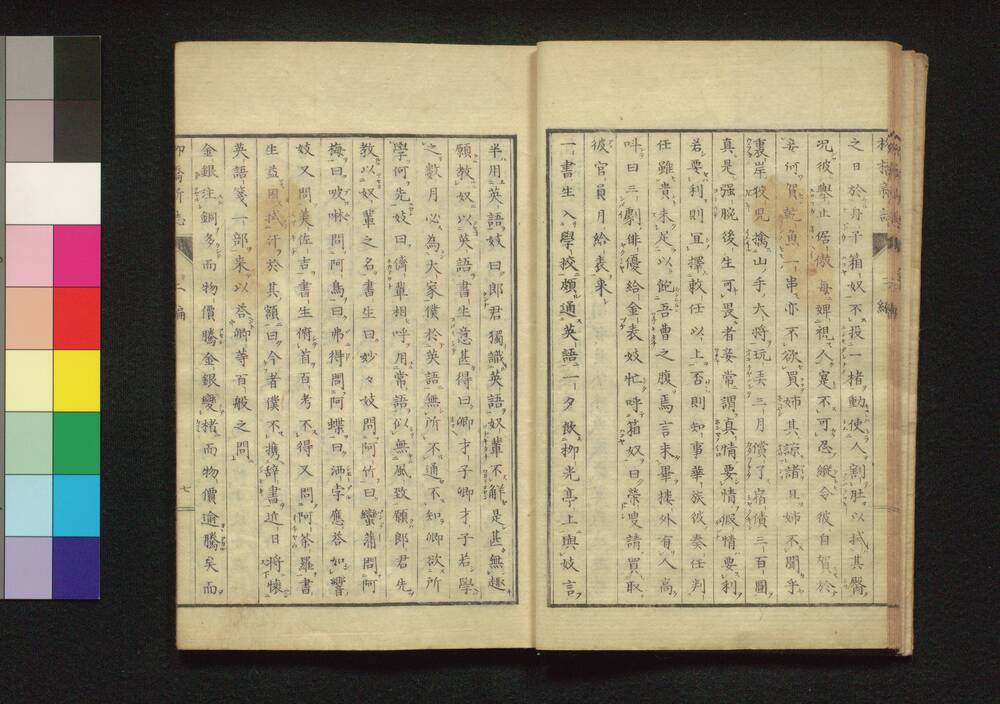 之日於舟子箱奴不投一楮動使人割肚以拭其臀
况彼擧止倨傲毎婢視人寔不可忍縱令彼自賀於
妾何賀乾魚一串亦不欲買姉其諒諸且姉不聞乎
裏岸彼兒擒山手大將玩弄三月償了宿債三百圓
真是强腕後生可畏者妾常謂真情要情假情要利
若要利則宜擇敕任以上否則知事華族彼奏任判
任雖貴未足以飽吾曹之腹焉言未畢樓外有人高
叫曰三劇俳優給金表妓忙呼箱奴曰榮叟請買取
彼官員月給表來
一書生入學挍頗通英語一夕飲柳光亭上與妓言
半用英語妓曰郎君獨識英語奴輩不解是甚無趣
願教奴以英語書生意甚得曰卿才子卿才子若學
之數月必為大家僕於英語無所不通不知卿欲所
學何先妓曰儕輩相呼用常語似無風致願郎君先
教以奴輩之名書生曰妙々妓問阿竹曰蠻蒲問阿
梅曰唊啉問阿鳥曰弗得問阿蝶曰洒孛應答如響
妓又問美佐吉書生俯首百考不得又問阿茶羅書
生益困拭汗於其額曰今者僕不擕辞書近日將懷
英語箋一部来以答卿等百般之問
金銀注銅多而物價騰金銀變楮而物價逾騰矣而
柳橋新誌 二編 七